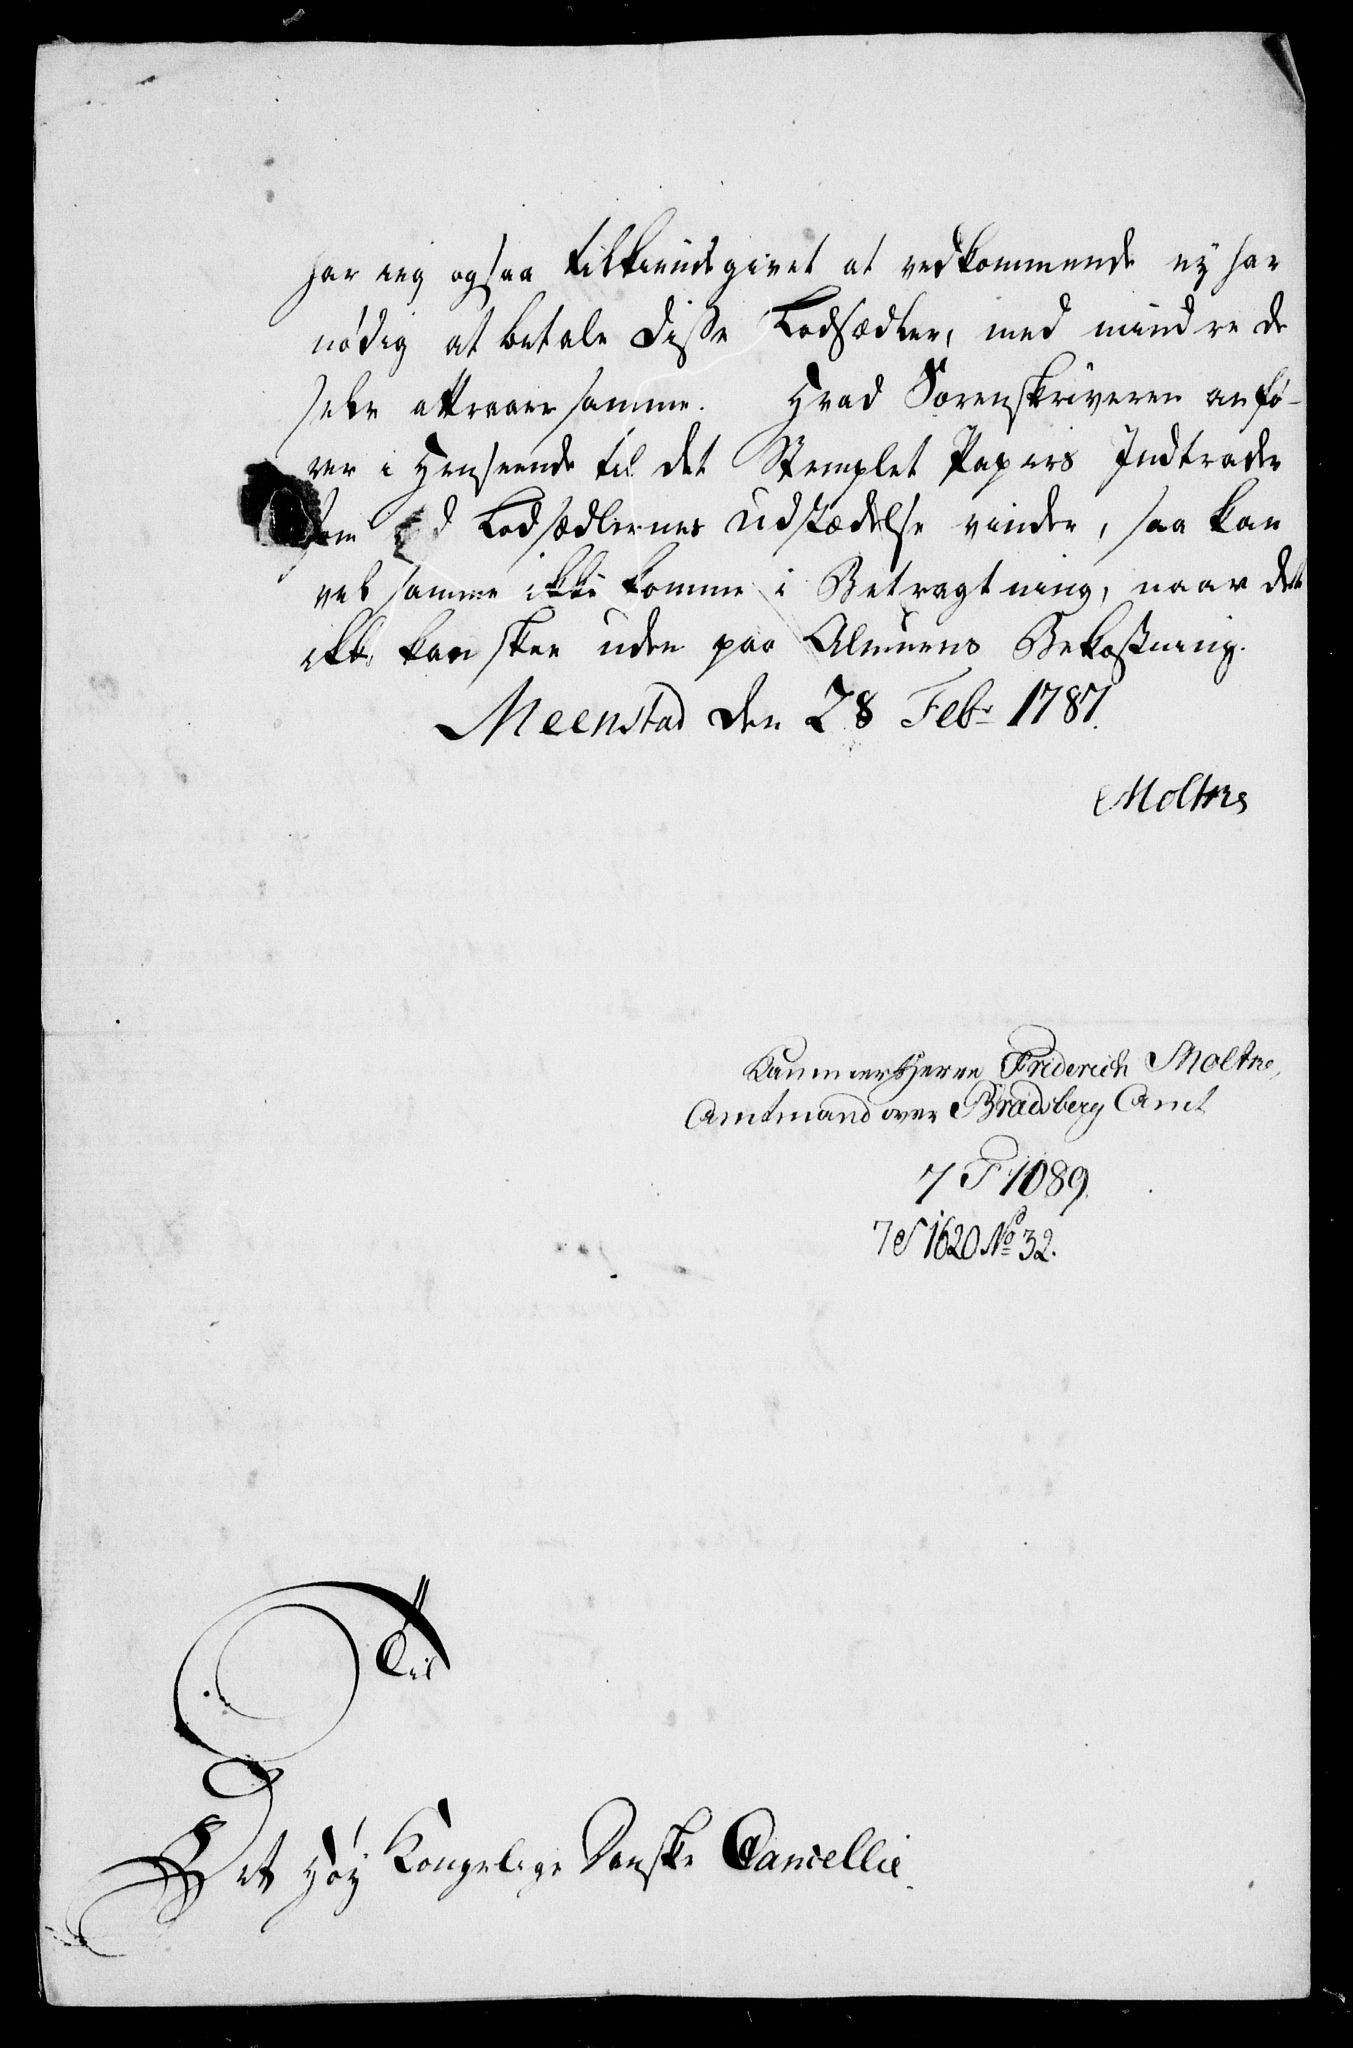 har ieg ogsaa tilkiendegivet at vedkommende ey har
nødig at betale disse Lodsædler, med mindre de
selv attraaer samme. Hvad Sorenskriveren anfø-
rer i Henseende til det Stemplet Papiirs Indtrade
som ved Lodsædlernes Udstædelse vinder, saa kan
vel samme ikke komme i Betragtning, naar det
ikke kan skee uden paa Almuens Bekostning.
Meenstad den 28 Febr 1787.
Moltke
Kammer Herre Friderich Moltke,
Amtmand over Bradsberg Amt
7 T 1089.
7 S 1620 No 32.
Til
Det Høy Kongelige Danske Cancellie.